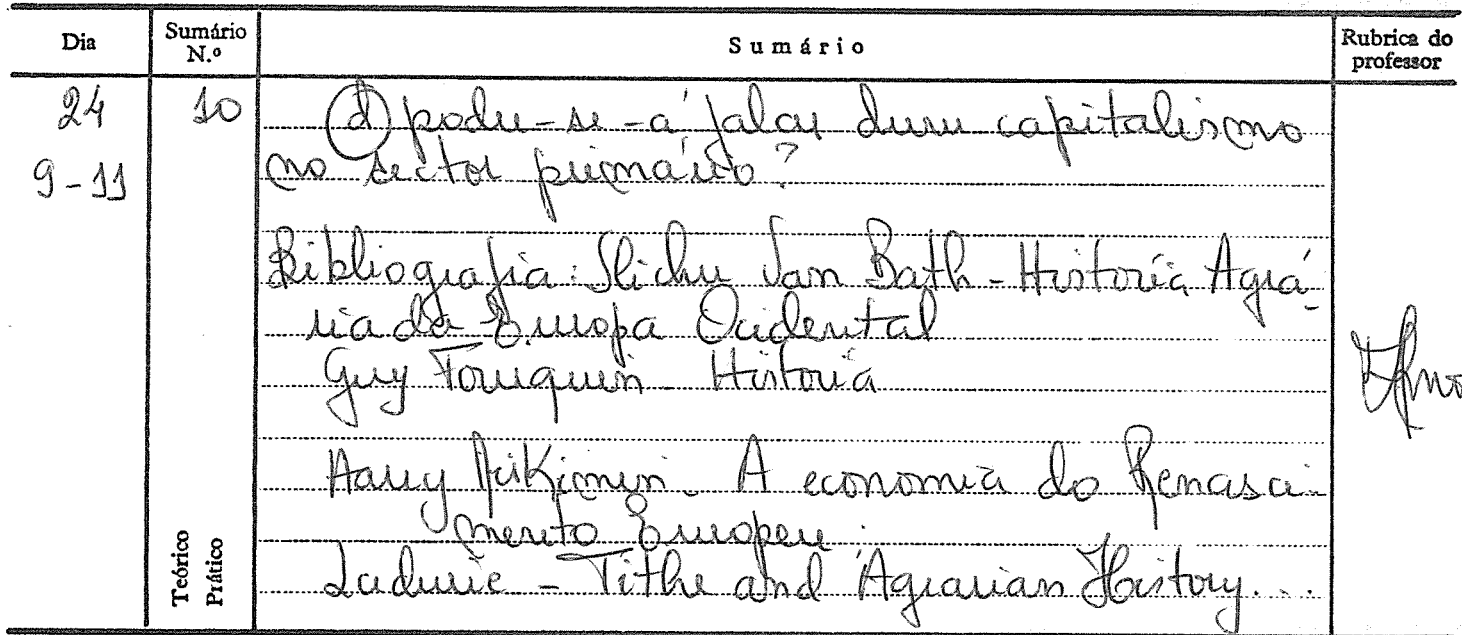 Dia
Sumário N.º
Sumário
Rubrica do professor
24
10
9-11
d) poder-se-á falar dum capitalismo
no sector primário?
Bibliografia: Slicher Van Bath - Historia Agrá-
ria da Europa Ocidental
Guy Fourquin - Historia
Harry Miskimin - A economia do Renasci-
mento Europeu
Ladurie - Tithe and Agrarian History...
Teórico
Prático